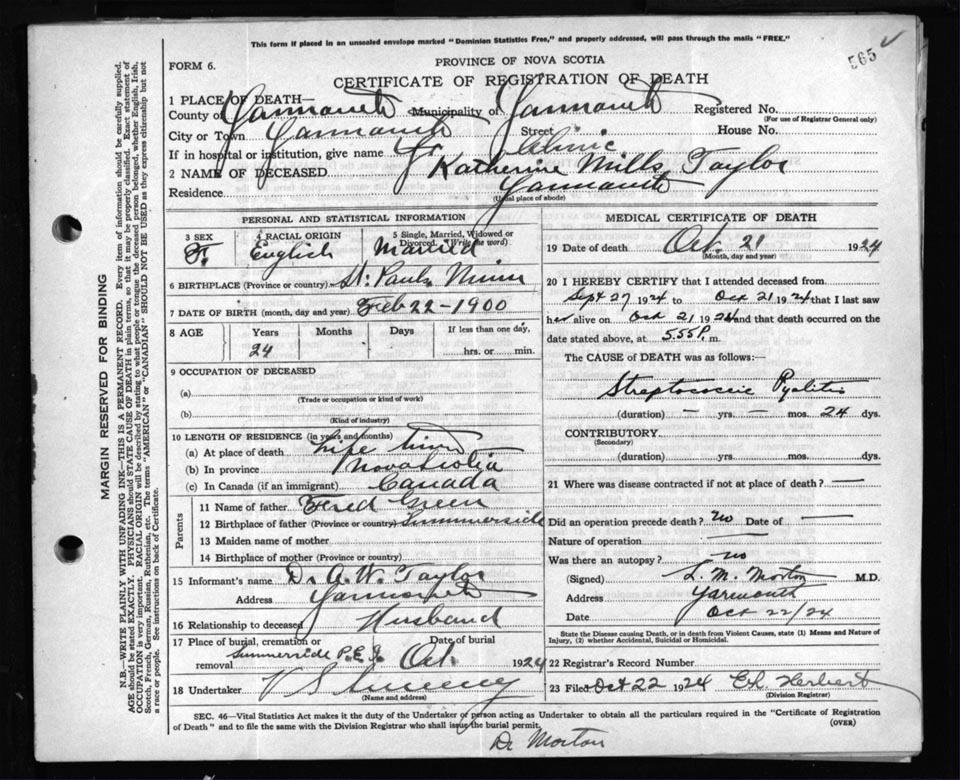 This form if placed in an unsealed envelope marked "Dominion Statistics Free," and properly addressed, will pass through the mails "FREE."
565
FORM 6.
PROVINCE OF NOVA SCOTIA
CERTIFICATE OF REGISTRATION OF DEATH
1 PLACE OF DEATH—
County of Yarmouth Municipality of Yarmouth Registered No.
(For use of Registrar General only)
City or Town Yarmouth Street House No.
If in hospital or institution, give name Clinic
2 NAME OF DECEASED Katherine Mills Taylor
Residence Yarmouth
(Usual place of abode)
PERSONAL AND STATISTICAL INFORMATION
3 SEX F. 4 RACIAL ORIGIN English 5 Single, Married, Widowed or Divorced. (Write the word) Married
6 BIRTHPLACE (Province or country) St. Pauls Minn
7 DATE OF BIRTH (month, day and year) Feb 22-1900
8 AGE Years Months Days If less than one day,
24 hrs. or min.
9 OCCUPATION OF DECEASED
(a)
(Trade or occupation or kind of work)
(b)
(Kind of industry)
10 LENGTH OF RESIDENCE (in years and months)
(a) At place of death Life time
(b) In province Nova Scotia
(c) In Canada (if an immigrant) Canada
Parents
11 Name of father Fred Green
12 Birthplace of father (Province or country) Summerside
13 Maiden name of mother
14 Birthplace of mother (Province or country)
15 Informant's name Dr A. W. Taylor
Address Yarmouth
16 Relationship to deceased Husband
17 Place of burial, cremation or removal Summerside P.E.I. Date of burial Oct. 1924
18 Undertaker V S
(Name and address)
MEDICAL CERTIFICATE OF DEATH
19 Date of death Oct. 21 1924
(Month, day and year)
20 I HEREBY CERTIFY that I attended deceased from
Sept 27 1924 to Oct 21 1924 that I last saw
her alive on Oct 21 1924 and that death occurred on the
date stated above, at 555 P. m.
The CAUSE of DEATH was as follows:—
Streptococcic Pyelitis
(duration) — yrs. — mos. 24 dys.
CONTRIBUTORY
(Secondary)
(duration) yrs. mos. dys.
21 Where was disease contracted if not at place of death? —
Did an operation precede death? no Date of —
Nature of operation —
Was there an autopsy? no
(Signed) L. M. Morton M.D.
Address Yarmouth
Date Oct 22/24
State the Disease causing Death, or in death from Violent Causes, state (1) Means and Nature of
Injury, (2) whether Accidental, Suicidal or Homicidal.
22 Registrar's Record Number
23 Filed Oct 22 1924 Herbert
(Division Registrar)
SEC. 46—Vital Statistics Act makes it the duty of the Undertaker or person acting as Undertaker to obtain all the particulars required in the "Certificate of Registration
of Death" and to file the same with the Division Registrar who shall issue the burial permit. (OVER)
Dr Morton
MARGIN RESERVED FOR BINDING
N.B.—WRITE PLAINLY WITH UNFADING INK—THIS IS A PERMANENT RECORD. Every item of information should be carefully supplied.
AGE should be stated EXACTLY. PHYSICIANS should STATE CAUSE OF DEATH in plain terms, so that it may be properly classified. Exact statement of
OCCUPATION is very important. RACIAL ORIGIN will be described by stating to what people or tongue the deceased person belonged, whether English, Irish,
Scotch, French, German, Russian, Ruthenian, etc. The terms "AMERICAN" or "CANADIAN" SHOULD NOT BE USED as they express citizenship but not
a race or people. See instructions on back of Certificate.